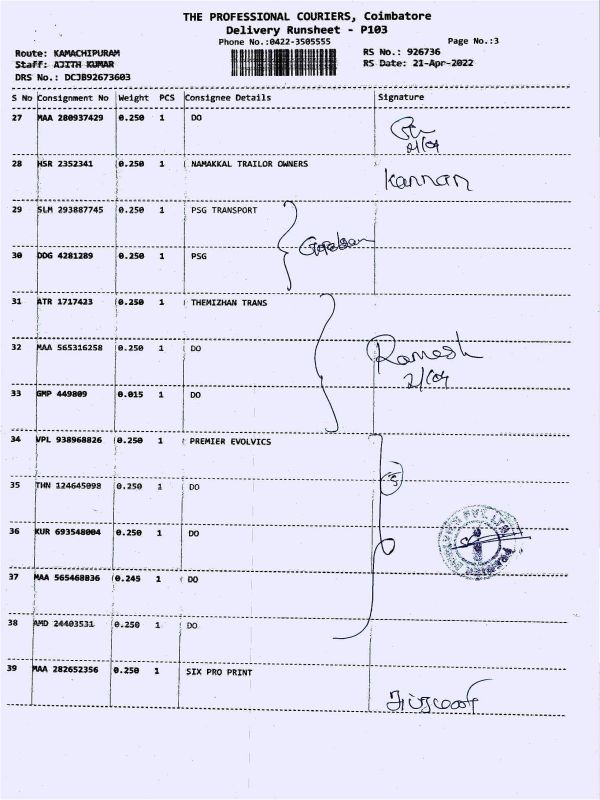 THE PROFESSIONAL COURIERS, Coimbatore
Delivery Runsheet - P103
Phone No.:0422-3505555 Page No.:3
Route: KAMACHIPURAM RS No.: 926736
Staff: AJITH KUMAR RS Date: 21-Apr-2022
DRS No.: DCJB92673603
S No Consignment No Weight PCS Consignee Details Signature
27 MAA 280937429 0.250 1 DO
21/04
28 HSR 2352341 0.250 1 NAMAKKAL TRAILOR OWNERS Kannan
29 SLM 293887745 0.250 1 PSG TRANSPORT
30 DDG 4281289 0.250 1 PSG
31 ATR 1717423 0.250 1 THEMIZHAN TRANS
32 MAA 565316258 0.250 1 DO Ramesh
21/04
33 GMP 449809 0.015 1 DO
34 VPL 938968826 0.250 1 PREMIER EVOLVICS
35 THN 124645098 0.250 1 DO 5
36 KUR 693548004 0.250 1 DO
37 MAA 565468836 0.245 1 DO
38 AMD 24403531 0.250 1 DO
39 MAA 282652356 0.250 1 SIX PRO PRINT